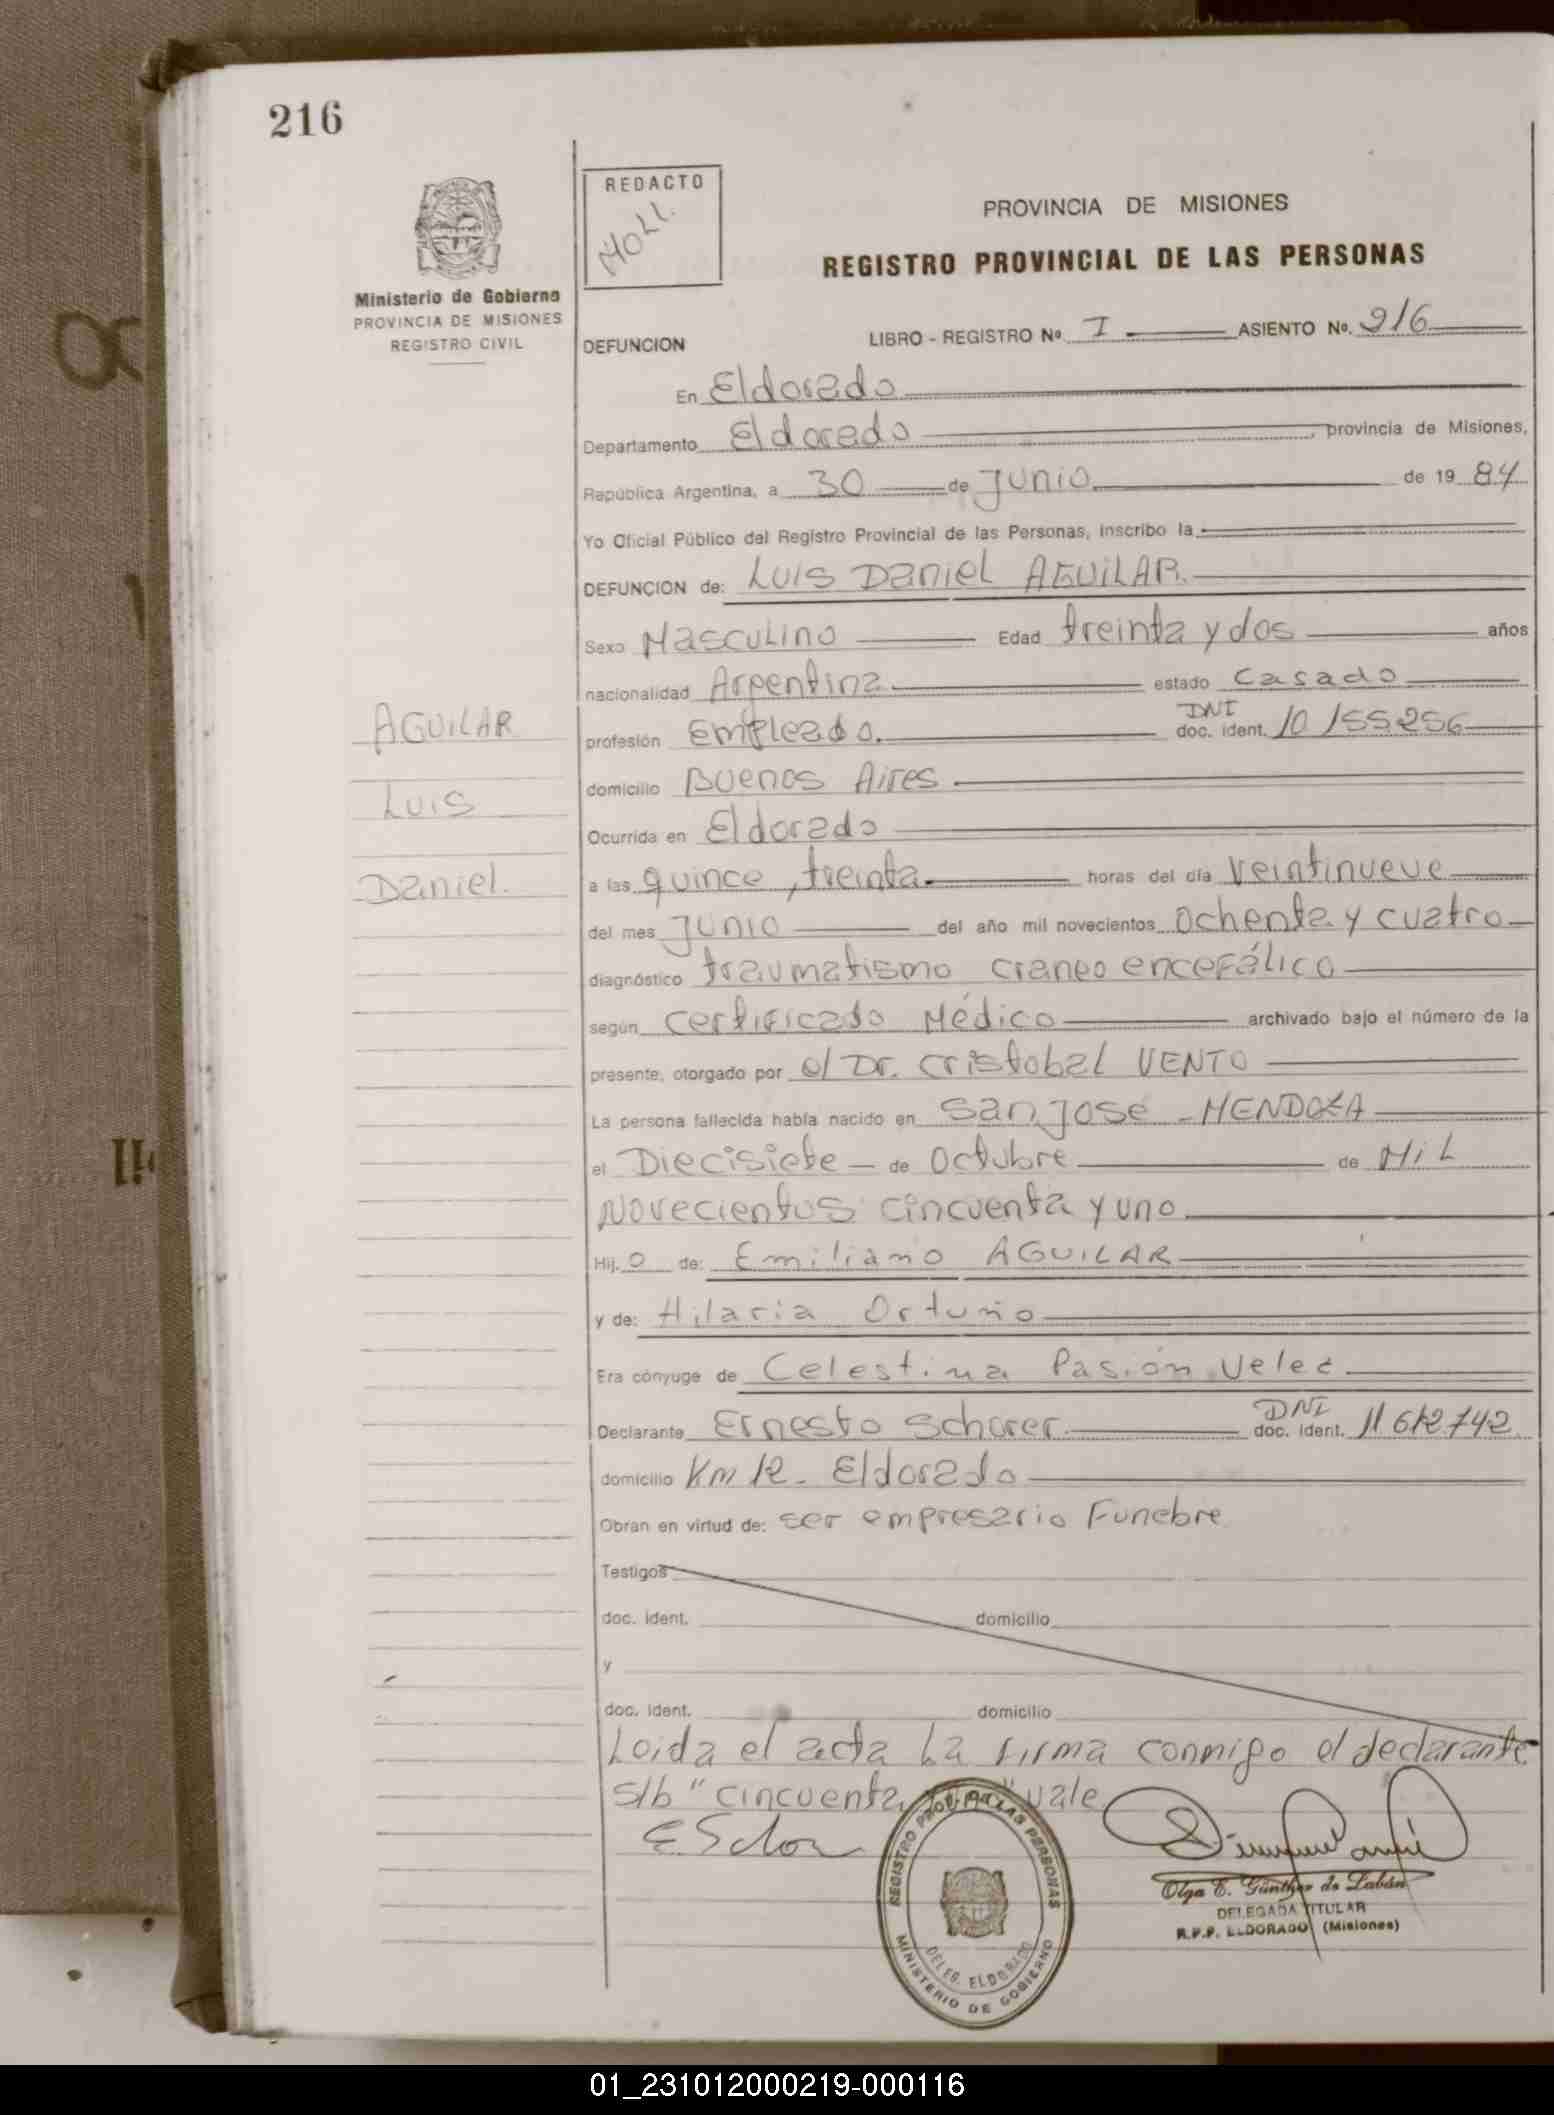 216
REDACTO
MOLL.
Ministerio de Gobierno
PROVINCIA DE MISIONES
REGISTRO CIVIL
PROVINCIA DE MISIONES
REGISTRO PROVINCIAL DE LAS PERSONAS
DEFUNCION
LIBRO - REGISTRO Nº. I ASIENTO Nº. 216
En Eldorado
Departamento Eldorado, provincia de Misiones,
República Argentina, a 30 de Junio de 19 84
Yo Oficial Público del Registro Provincial de las Personas, inscribo la
DEFUNCION de: Luis Daniel AGUILAR.
Sexo Masculino Edad treinta y dos años
nacionalidad Argentina estado Casado
DNI
profesión empleado. doc. ident. 10 155256
domicilio Buenos Aires
Ocurrida en Eldorado
a las quince, treinta horas del día veintinueve
del mes Junio del año mil novecientos ochenta y cuatro
diagnóstico traumatismo craneo encefálico
según certificado Médico archivado bajo el número de la
presente, otorgado por el Dr. Cristobal VENTO
La persona fallecida había nacido en San José - MENDOZA
el Diecisiete de Octubre de Mil
Novecientos cincuenta y uno
Hij. o de: Emiliano AGUILAR
y de: Hilaria Ortuño
Era cónyuge de Celestina Pasión Velez
DNI
Declarante Ernesto Scherer doc. ident. 11 612.742
domicilio Km 12 - Eldorado
Obran en virtud de: ser empresario Funebre
Testigos
doc. ident. domicilio
y
doc. ident. domicilio
AGUILAR
Luis
Daniel.
Leida el acta La firma conmigo el declarante
s/b "cincuenta " vale
REGISTRO PROV. DE LAS PERSONAS
DELEG. ELDORADO
MINISTERIO DE GOBIERNO
Olga E. Günther de Labán
DELEGADA TITULAR
R.P.P. ELDORADO (Misiones)
01_231012000219-000116